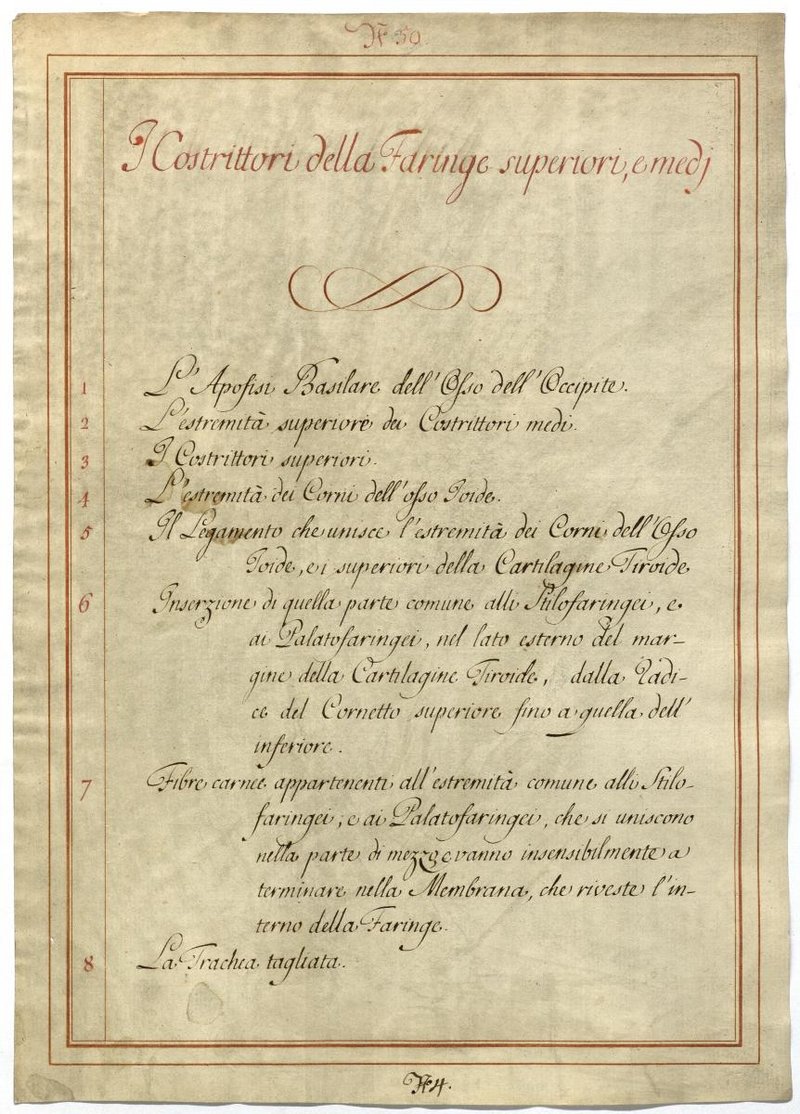 N 59.
I Costrittori della Faringe superiori, e medj
1 L'Apofisi Basilare dell'Osso dell'Occipite.
2 L'estremità superiore dei Costrittori medi.
3 I Costrittori superiori.
4 L'estremità dei Corni dell'osso Ioide.
5 Il Legamento che unisce l'estremità dei Corni dell'Osso
Ioide, e i superiori della Cartilagine Tiroide
6 Inserzione di quella parte comune alli Stilofaringei, e
ai Palatofaringei, nel lato esterno del mar-
gine della Cartilagine Tiroide, dalla Radi-
ce del Cornetto superiore fino a quella dell'
inferiore.
7 Fibre carnee appartenenti all'estremità comune alli Stilo-
faringei, e ai Palatofaringei, che si uniscono
nella parte di mezzo e vanno insensibilmente a
terminare nella Membrana, che riveste l'in-
terno della Faringe.
8 La Trachea tagliata.
N 4.